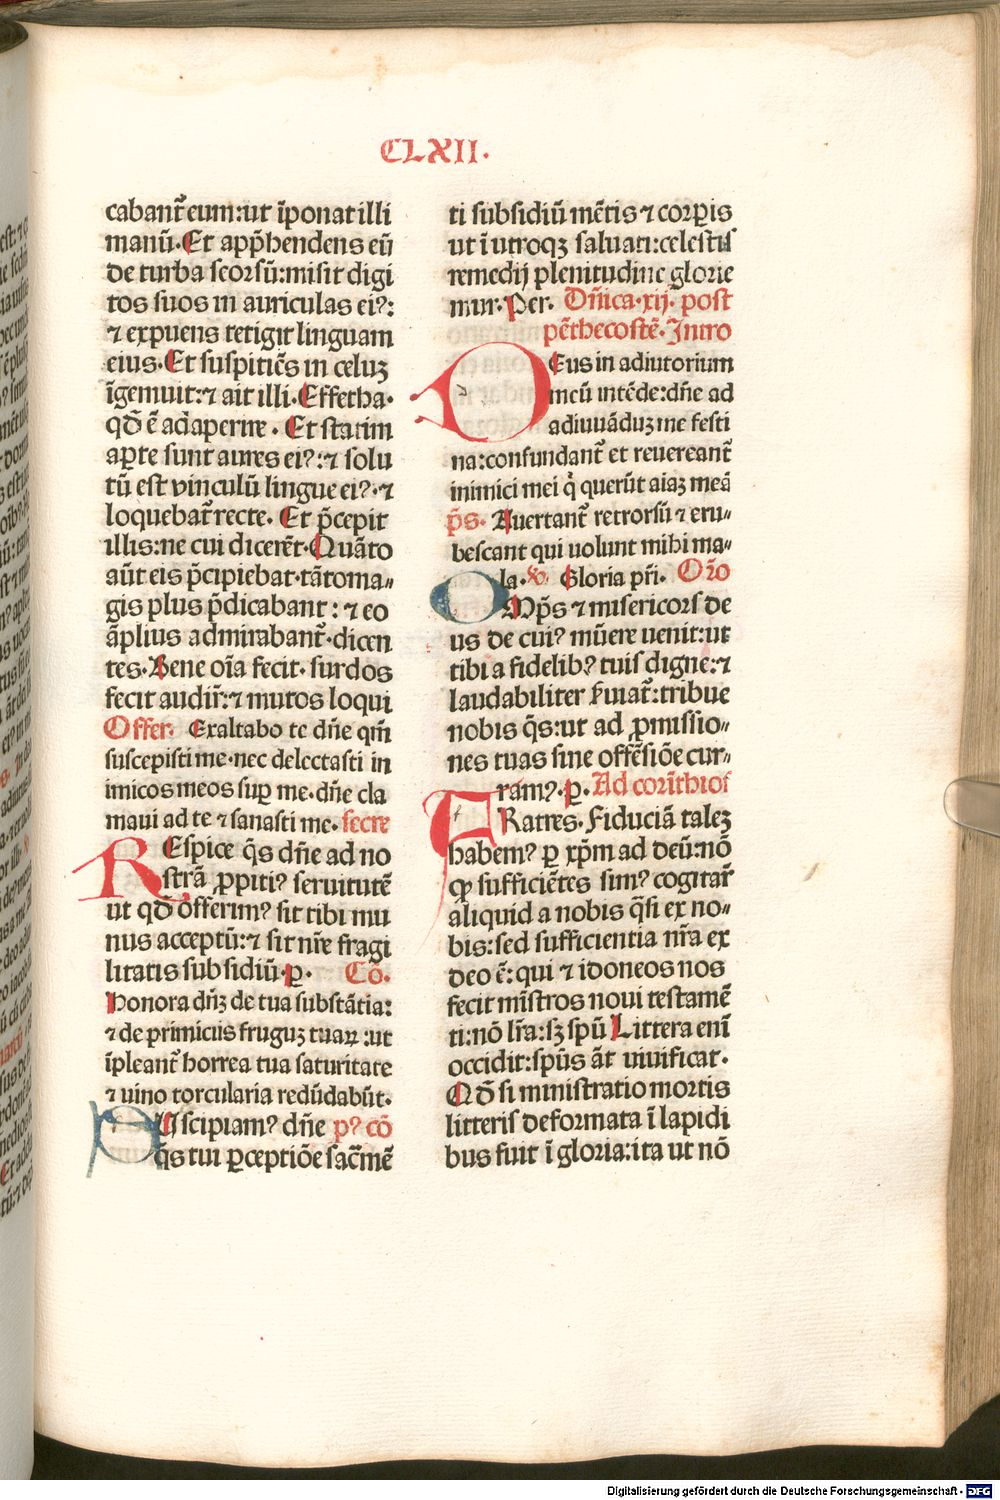 CLXII.
cabant̃ eum:ut īponat illi
manū. Et app̄hendens eū
de turba seorsū:misit digi
tos suos in auriculas eiꝰ:
⁊ expuens tetigit linguam
eius. Et suspitiēs in celuꝫ
īgemuit:⁊ ait illi. Effetha.
qđ ē adaperire. Et statim
aꝑte sunt aures eiꝰ:⁊ solu
tū est vinculū lingue eiꝰ.⁊
loquebat̃ recte. Et p̄cepit
illis:ne cui dicerēt. Quāto
aūt eis p̄cipiebat.tāto ma⸗
gis plus p̄dicabant: ⁊ eo
āplius admirabant̃.dicen
tes. Bene oīa fecit. surdos
fecit audir̃:⁊ mutos loqui
Offer. Exaltabo te dn̄e qm̄
suscepisti me.nec delectasti in
imicos meos suꝑ me.dn̄e cla
maui ad te ⁊ sanasti me. secre
REspice q̄s dn̄e ad no
strā ꝓpitiꝰ seruitutē
ut qđ offerimꝰ sit tibi mu
nus acceptū:⁊ sit nr̄e fragi
litatis subsidiū.ꝑ. Cō.
Honora dn̄ꝫ de tua substātia:
⁊ de primiciis fruguꝫ tuaꝝ:ut
īpleant̃ horrea tua saturitate
⁊ uino torcularia redūdabūt.
Scipiamꝰ dn̄e pꝰ cō
q̄s tui ꝑceptiōe sac̄mē
ti subsidiū mētis ⁊ corꝑis
ut ī utroqꝫ saluati:celestis
remedij plenitudine glorie
mur. Per. Dn̄ica.xij. post
pēthecostē. Intro
DEus in adiutorium
meū intēde:dn̄e ad
adiuuāduꝫ me festi
na:confundant̃ et reuereant̃
inimici mei q̇ querūt aīaꝫ meā
p̄s. Auertant̃ retrorsū ⁊ eru⸗
bescant qui uolunt mihi ma⸗
la. ℣. Gloria pr̄i. Or̄o
OMp̄s ⁊ misericors de
us de cuiꝰ mūere uenit:ut
tibi a fidelibꝰ tuis digne:⁊
laudabiliter ẜuiat̃:tribue
nobis q̄s:ut ad ꝓmissio⸗
nes tuas sine offēsiōe cur⸗
ramꝰ. ꝑ. Ad corīthios
FRatres. Fiduciā taleꝫ
habemꝰ ꝑ xp̄m ad deū:nō
ꝙ sufficiētes simꝰ cogitar̃
aliquid a nobis q̄si ex no⸗
bis:sed sufficientia nr̄a ex
deo ē: qui ⁊ idoneos nos
fecit mīstros noui testamē
ti:nō lr̄a:sꝫ spū Littera enī
occidit:spūs āt uiuificat.
Qđ si ministratio mortis
litteris deformata ī lapidi
bus fuit ī gloria:ita ut nō
Digitalisierung gefördert durch die Deutsche Forschungsgemeinschaft - DFG